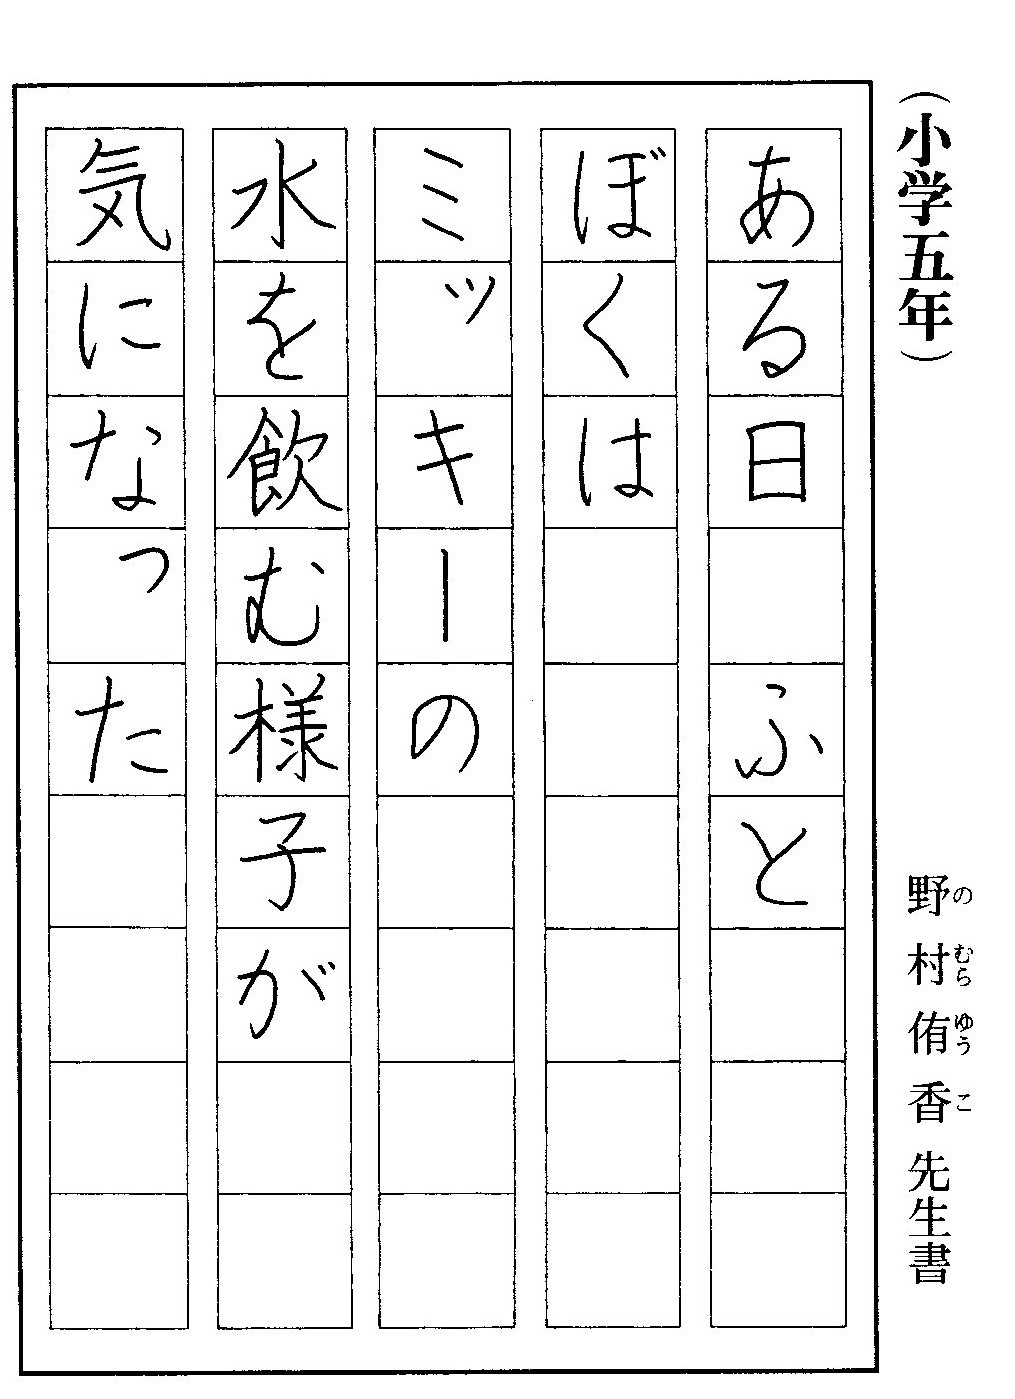 （小学五年）
野村侑香先生書
のむらゆうこ
ある日　ふと
ぼくは
ミッキーの
水を飲む様子が
気になった